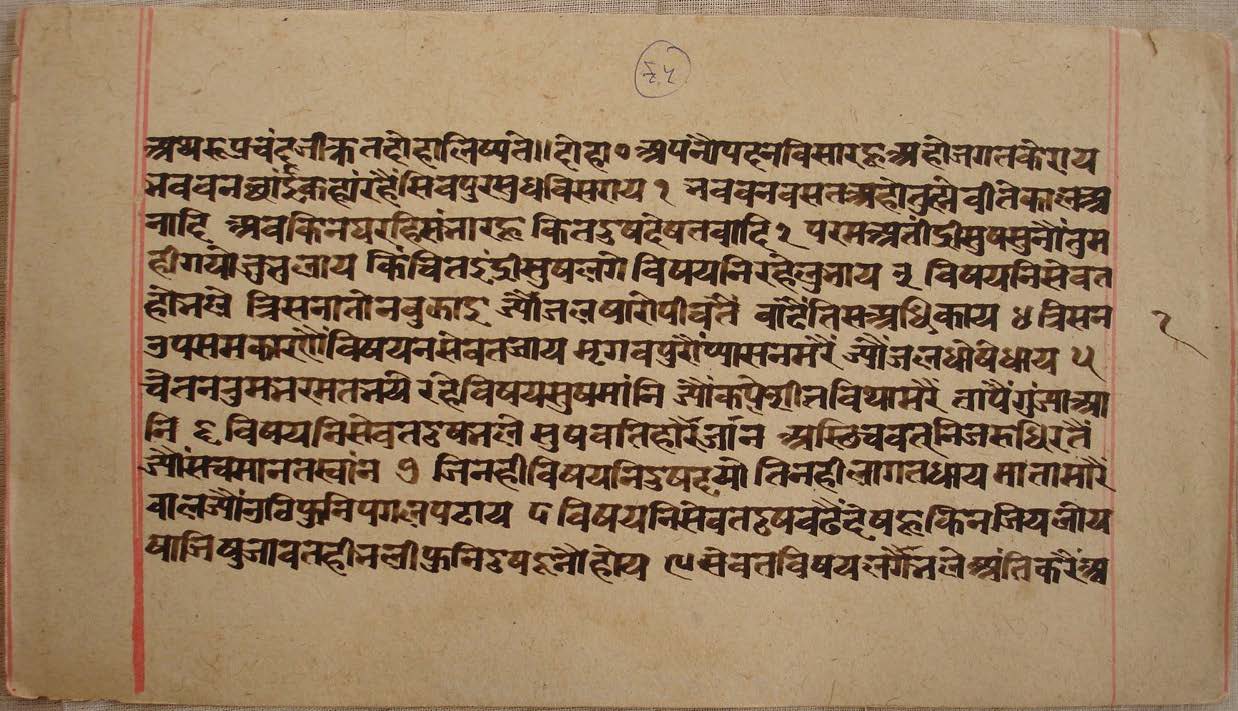 ६५
अथ रूपचंदजी कृत दोहा लिष्यते।। दोहा ० अपनौ पद न विसारहू अहो जगत के राय
भव वन छाईं कहां रहैं सिवपुर सुध विसराय १ भव वन वसत अहो तुह्मै वीते काल अ
नादि अव किन घरहि संभारहू कित दुष देषत वादि २ परम अतींद्री सुष सुनौं तुम
ही गयौ जु भुलाय किंचित इंद्री सुष लगे विषयनि रहे लुभाय ३ विषयनि सेवत
हो भले त्रिसना तो न वुझाइ ज्यौं जल षारो पीवतैं वाढैं तिस अधिकाय ४ त्रिसन
उपसम कारणैं विषयन सेवत जाय मृग वपुरौ प्यासन मरैं ज्यौं जल धोषे धाय ५
चेतन तुम भरमत भये रहे विषय सुष मांनि ज्यौं कपि शीत विथा मरैं तापैं गुंजा आ
नि ६ विषयनि सेवत दुष भले सुष वति हारैं जांन अस्छि चवत निज रुधिर तैं
ज्यौं सच मानत स्वांन ७ जिनही विषयनि दुष दयो तिनही लागत धाय माता मारैं
वाल ज्यौं त्रवि फुनि पग लपटाय ८ विषयनि सेवत दुष वढैं देषहू किन जिय जोय
षाजि षुजावत ही भली फुनि दुष दूनौ होय ९ सेवत विषय लगैं भले अंति करैं अ
१